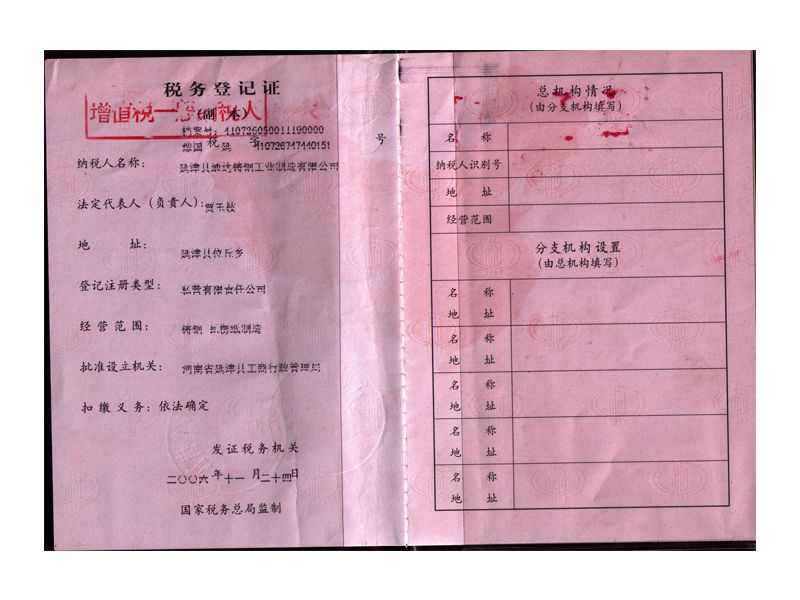 税务登记证
增值税一般纳税人
(副 本)
档案号：410726050011190000
豫国 税 延 字 410726747440151 号
纳税人名称：延津县通达铸钢工业制造有限公司
法定代表人（负责人）：贾玉枝
地 址：延津县位丘乡
登记注册类型：私营有限责任公司
经营范围：铸钢
批准设立机关：河南省延津县工商行政管理局
扣缴义务：依法确定
发证税务机关
二〇〇六年十一月二十四日
国家税务总局监制
总机构情况
(由分支机构填写)
名 称
纳税人识别号
地 址
经营范围
分支机构设置
(由总机构填写)
名 称
地 址
名 称
地 址
名 称
地 址
名 称
地 址
名 称
地 址